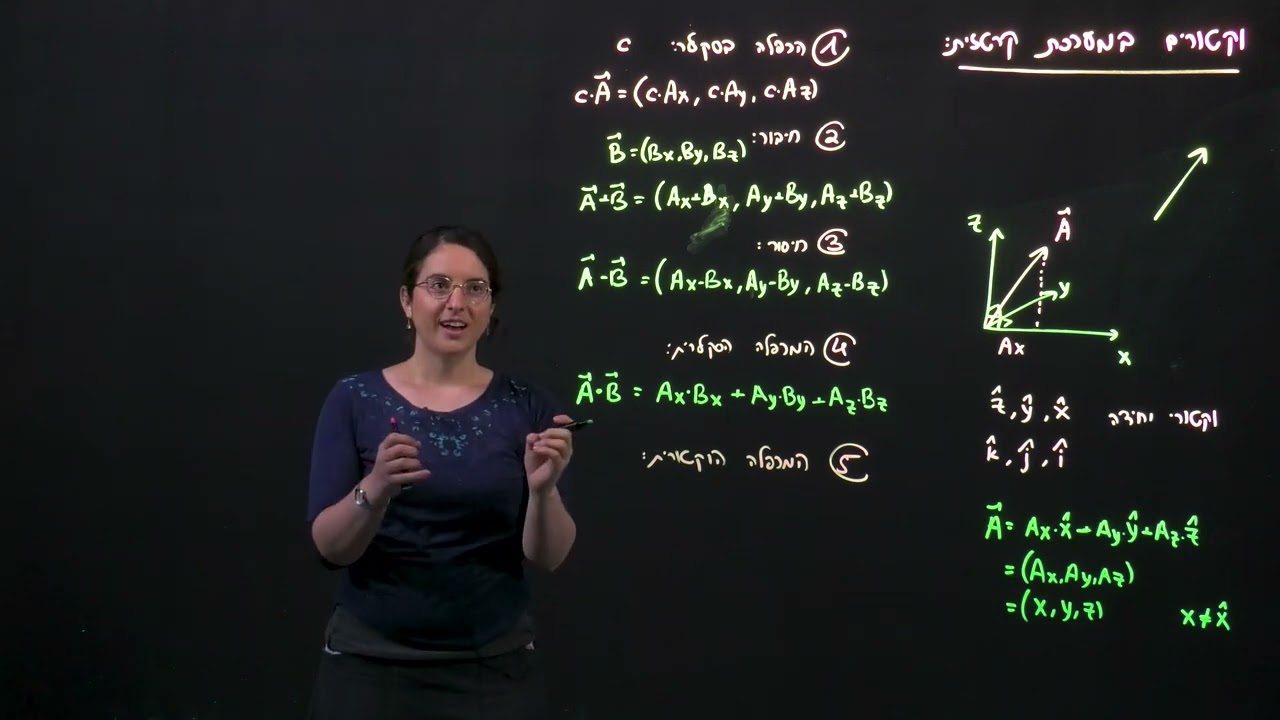 וקטורים במערכת קרטזית:
z
A⃗
y
Ax
x
וקטורי יחידה x̂, ŷ, ẑ
î, ĵ, k̂
A⃗ = Ax·x̂ + Ay·ŷ + Az·ẑ
= (Ax, Ay, Az)
= (x, y, z) x ≠ x̂
① הכפלה בסקלר: c
c·A⃗ = (c·Ax, c·Ay, c·Az)
② חיבור: B⃗ = (Bx, By, Bz)
A⃗ + B⃗ = (Ax+Bx, Ay+By, Az+Bz)
③ חיסור:
A⃗ - B⃗ = (Ax-Bx, Ay-By, Az-Bz)
④ המכפלה הסקלרית:
A⃗·B⃗ = Ax·Bx + Ay·By + Az·Bz
⑤ המכפלה הוקטורית: